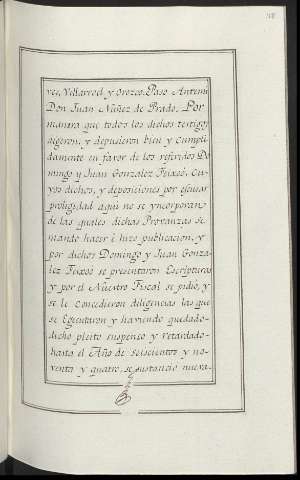 ves, Villarroel y Orozco. Paso Antemi
Don Juan Nuñez de Prado. Por
manera que todos los dichos testigos
digeron, y depusieron bien y cumpli
damente en favor de los referidos Do
mingo y Juan Gonzalez Feixoó, cu
yos dichos, y deposiciones por escusar
prolixidad aqui no se yncorporan,
de las quales dichas Provanzas se
mando hacer é hizo publicacion, y
por dichos Domingo y Juan Gonza
lez Feixoó se presentaron Escripturas
y por el Nuestro Fiscal se pidió, y
se le concedieron diligencias las que
se Egecutaron y haviendo quedado
dicho pleito suspenso y retardado
hasta el Año de seiscientos y no
venta y quatro, se sustancio nueva-